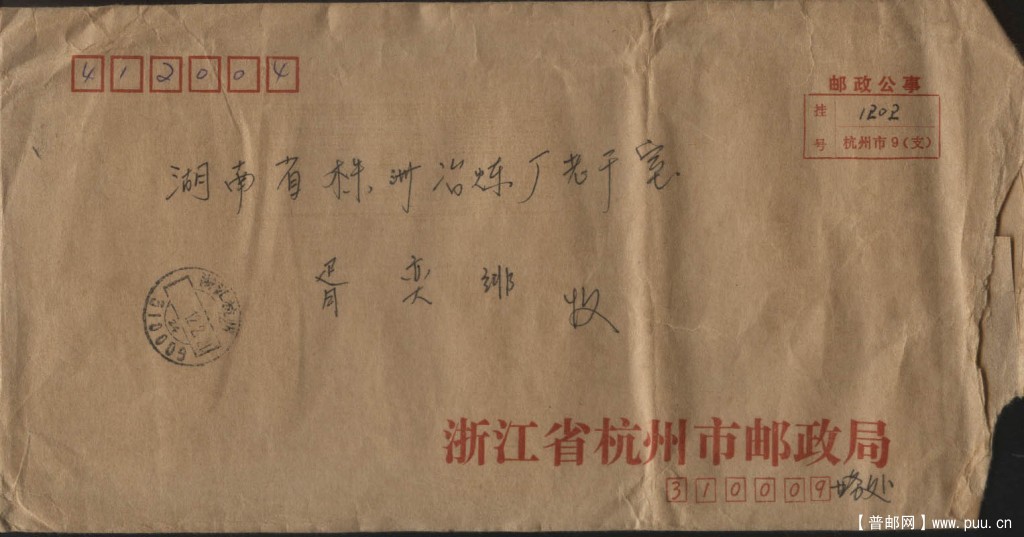 412004
邮政公事
挂号 1202
杭州市9(支)
湖南省株洲冶炼厂老干室
胥奕 收
310009
浙江省杭州市邮政局
310009 处
【普邮网】www.puu.cn